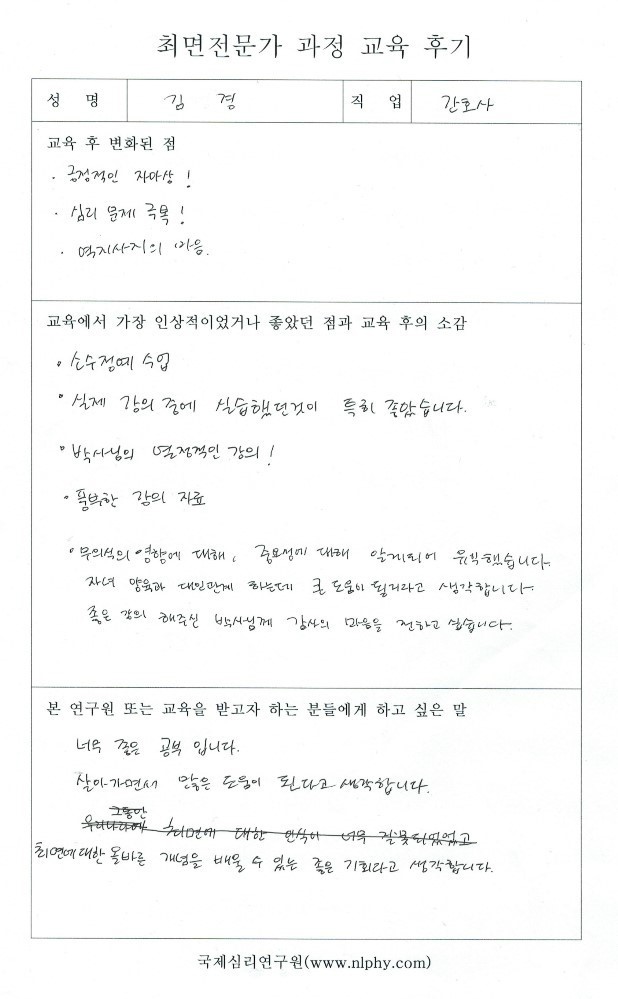 최면전문가 과정 교육 후기
성 명 김 경 직 업 간호사
교육 후 변화된 점
· 긍정적인 자아상!
· 심리 문제 극복!
· 역지사지의 마음.
교육에서 가장 인상적이었거나 좋았던 점과 교육 후의 소감
· 소수정예 수업
· 실제 강의 중에 실습했던것이 특히 좋았습니다.
· 박사님의 열정적인 강의!
· 풍부한 강의 자료
· 무의식의 영향에 대해, 중요성에 대해 알게되어 유익했습니다.
자녀 양육과 대인관계 하는데 큰 도움이 될거라고 생각합니다.
좋은 강의 해주신 박사님께 감사의 마음을 전하고 싶습니다.
본 연구원 또는 교육을 받고자 하는 분들에게 하고 싶은 말
너무 좋은 공부 입니다.
살아가면서 많은 도움이 된다고 생각합니다.
그동안
우리나라에 최면에 대한 인식이 너무 잘못되었었고
최면에 대한 올바른 개념을 배울 수 있는 좋은 기회라고 생각합니다.
국제심리연구원(www.nlphy.com)